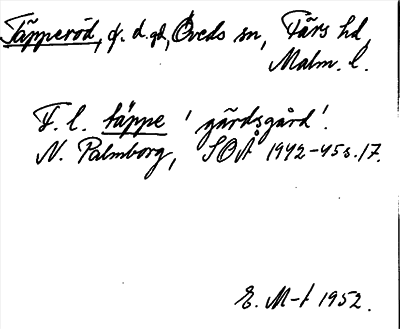 Täpperöd, f. d. gd, Öveds sn, Färs hd,
Malm. l.
F. l. täppe 'gärdsgård'.
N. Palmborg, SOÅ 1942-45 s. 17.
E. M-t 1952.